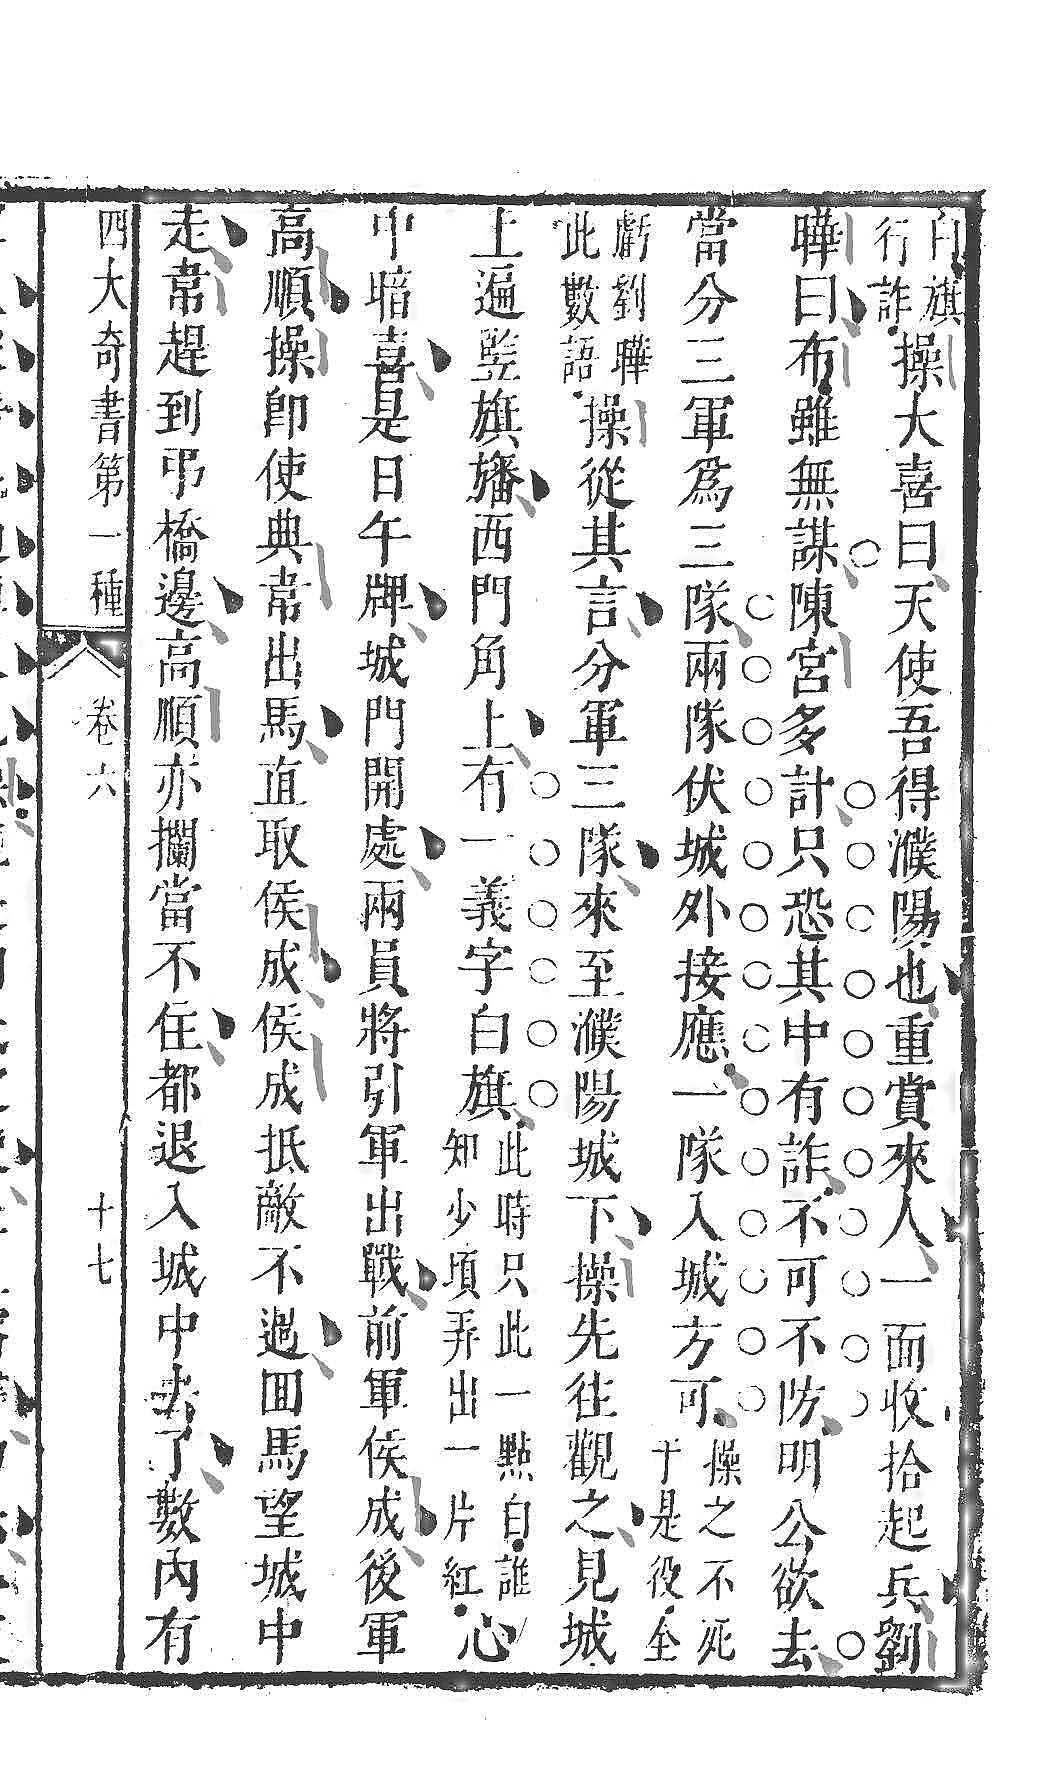 白旗行詐操大喜曰天使吾得濮陽也重賞來人一面收拾起兵劉
曄曰布雖無謀陳宮多計只恐其中有詐不可不防明公欲去
當分三軍爲三隊兩隊伏城外接應一隊入城方可操之不死于是役全
虧劉曄此數語操從其言分軍三隊來至濮陽城下操先往觀之見城
上遍竪旗旛西門角上有一義字白旗此時只此一點白誰知少頃弄出一片紅心
中暗喜是日午牌城門開處兩員將引軍出戰前軍侯成後軍
高順操卽使典韋出馬直取侯成侯成抵敵不過回馬望城中
走韋趕到弔橋邊高順亦攔當不住都退入城中去了數內有
四大奇書第一種 卷六 十七